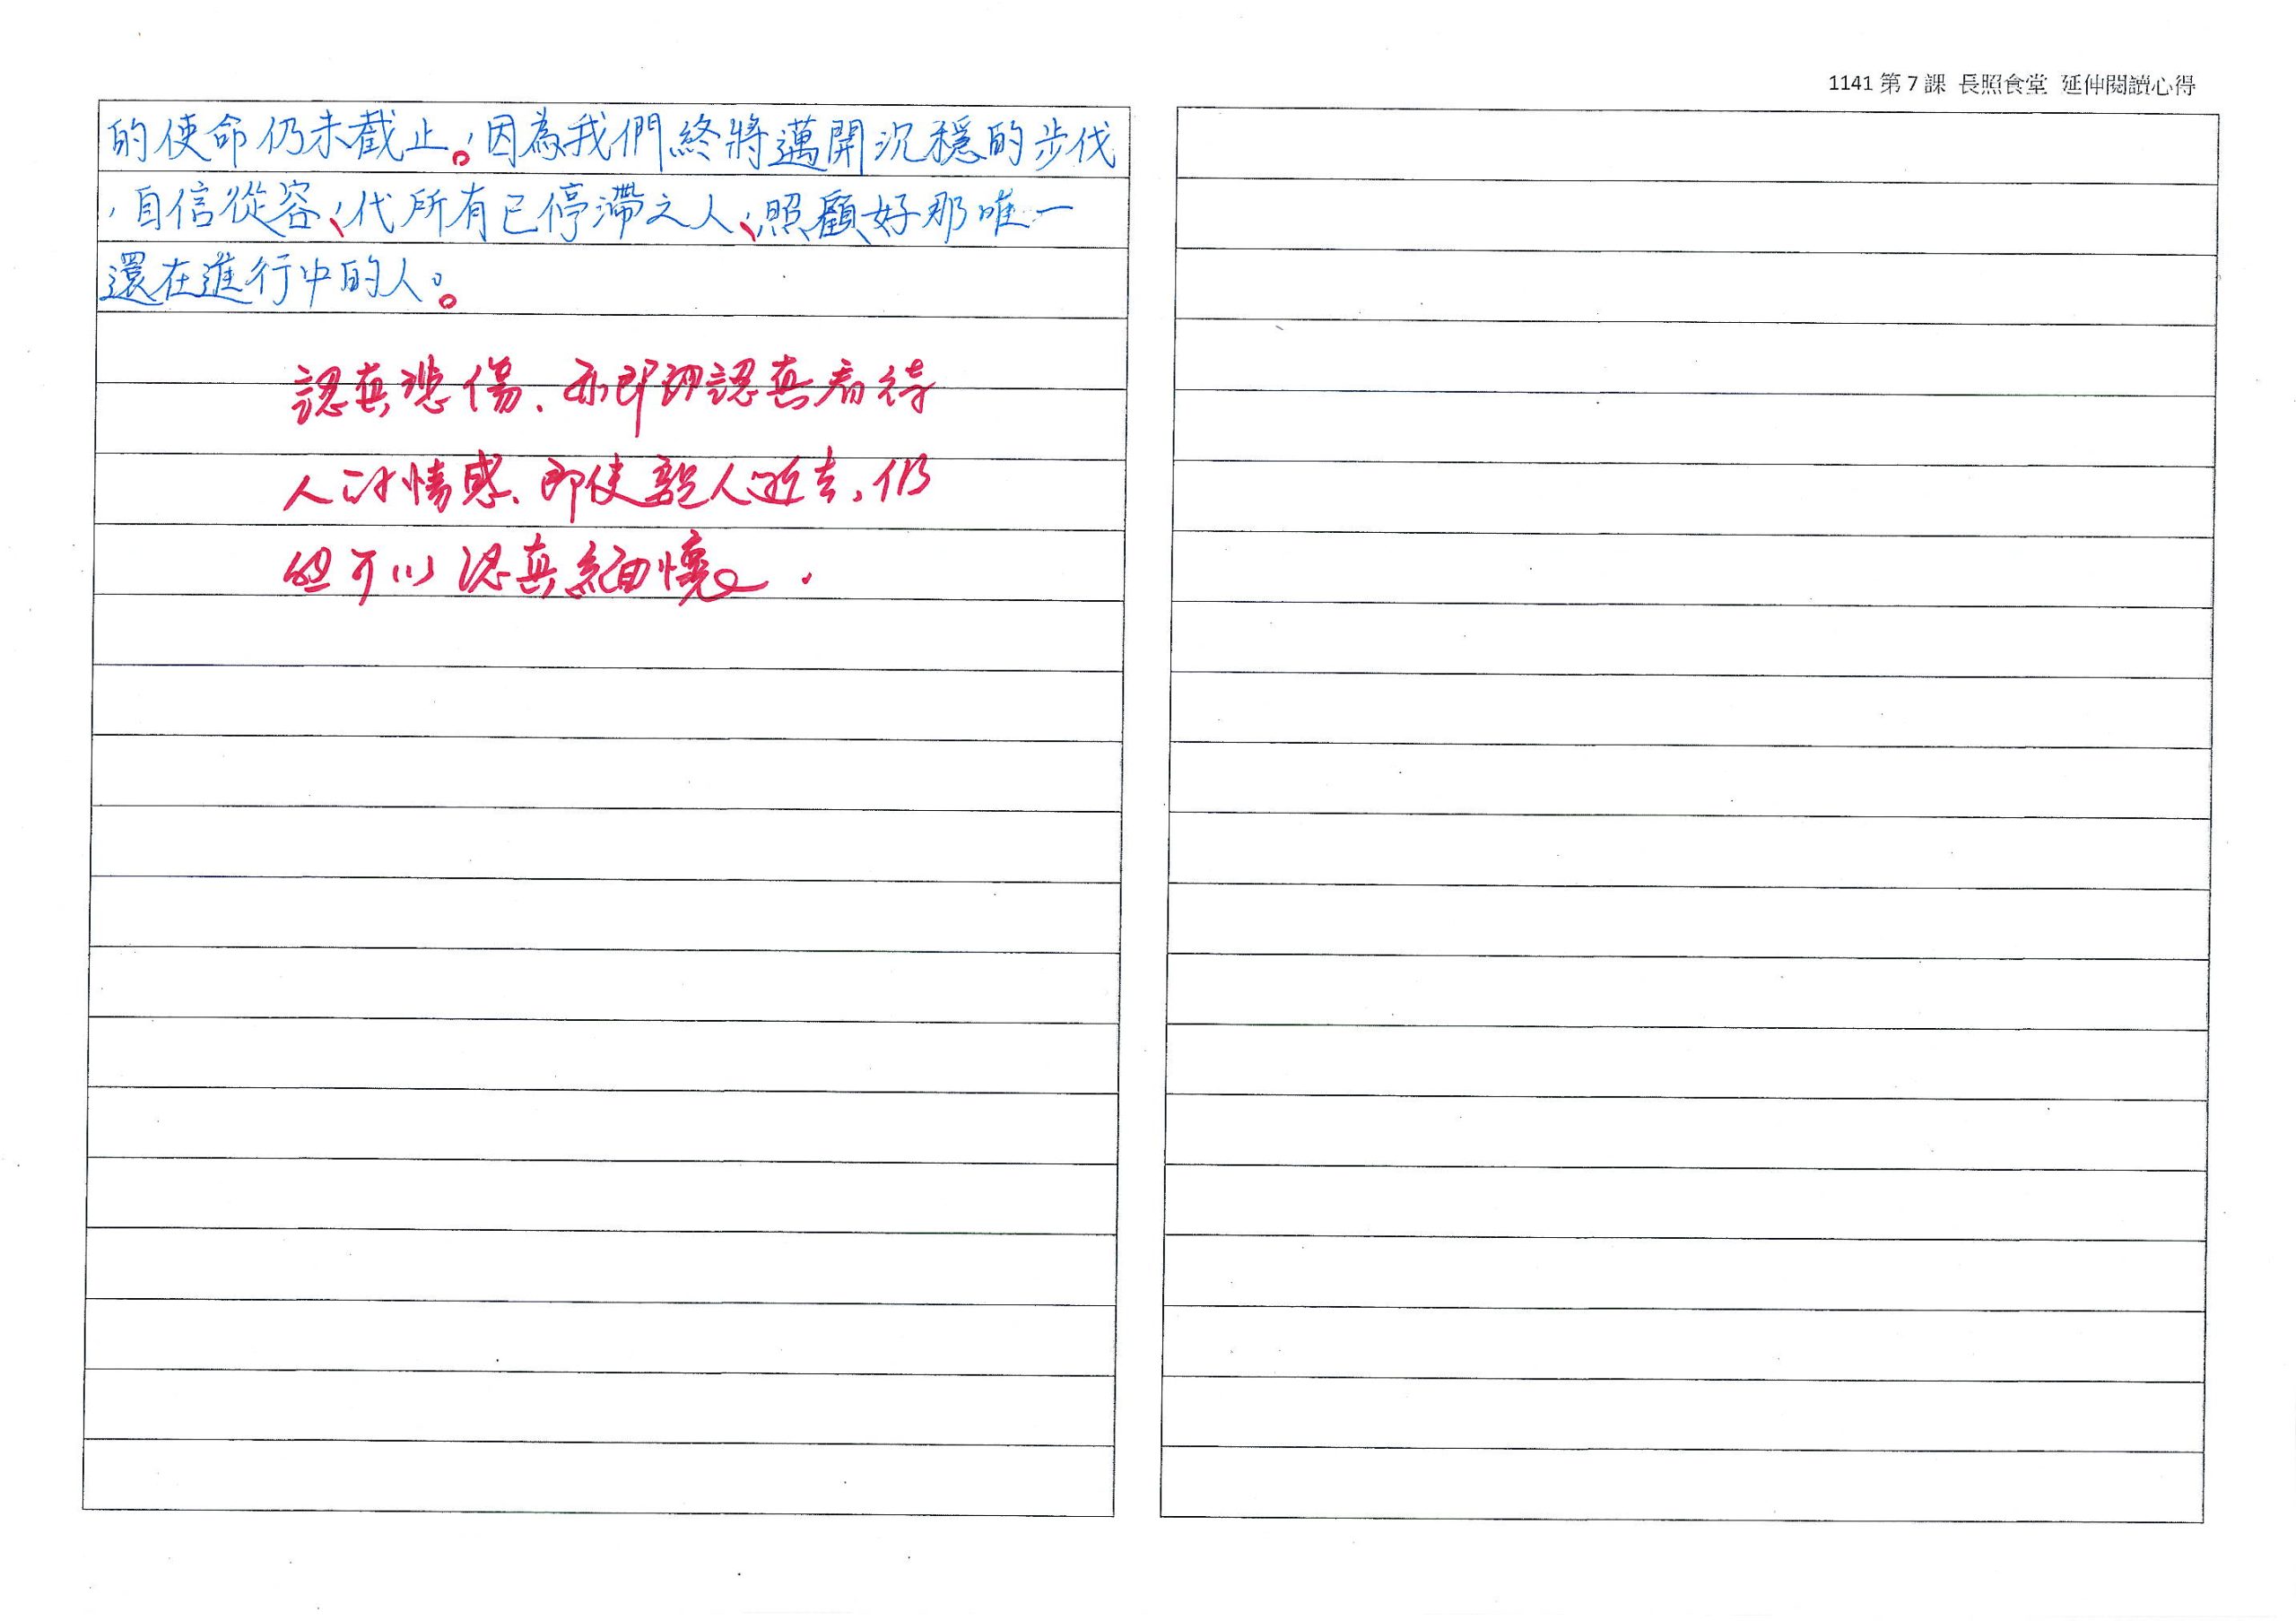 1141 第 7 課 長照食堂 延伸閱讀心得
的使命仍未截止。因為我們終將邁開沉穩的步伐
，自信從容，代所有已停滯之人，照顧好那唯一
還在進行中的人。
認真悲傷、亦即認真看待
人的情感、即使親人逝去，仍
可以認真緬懷。